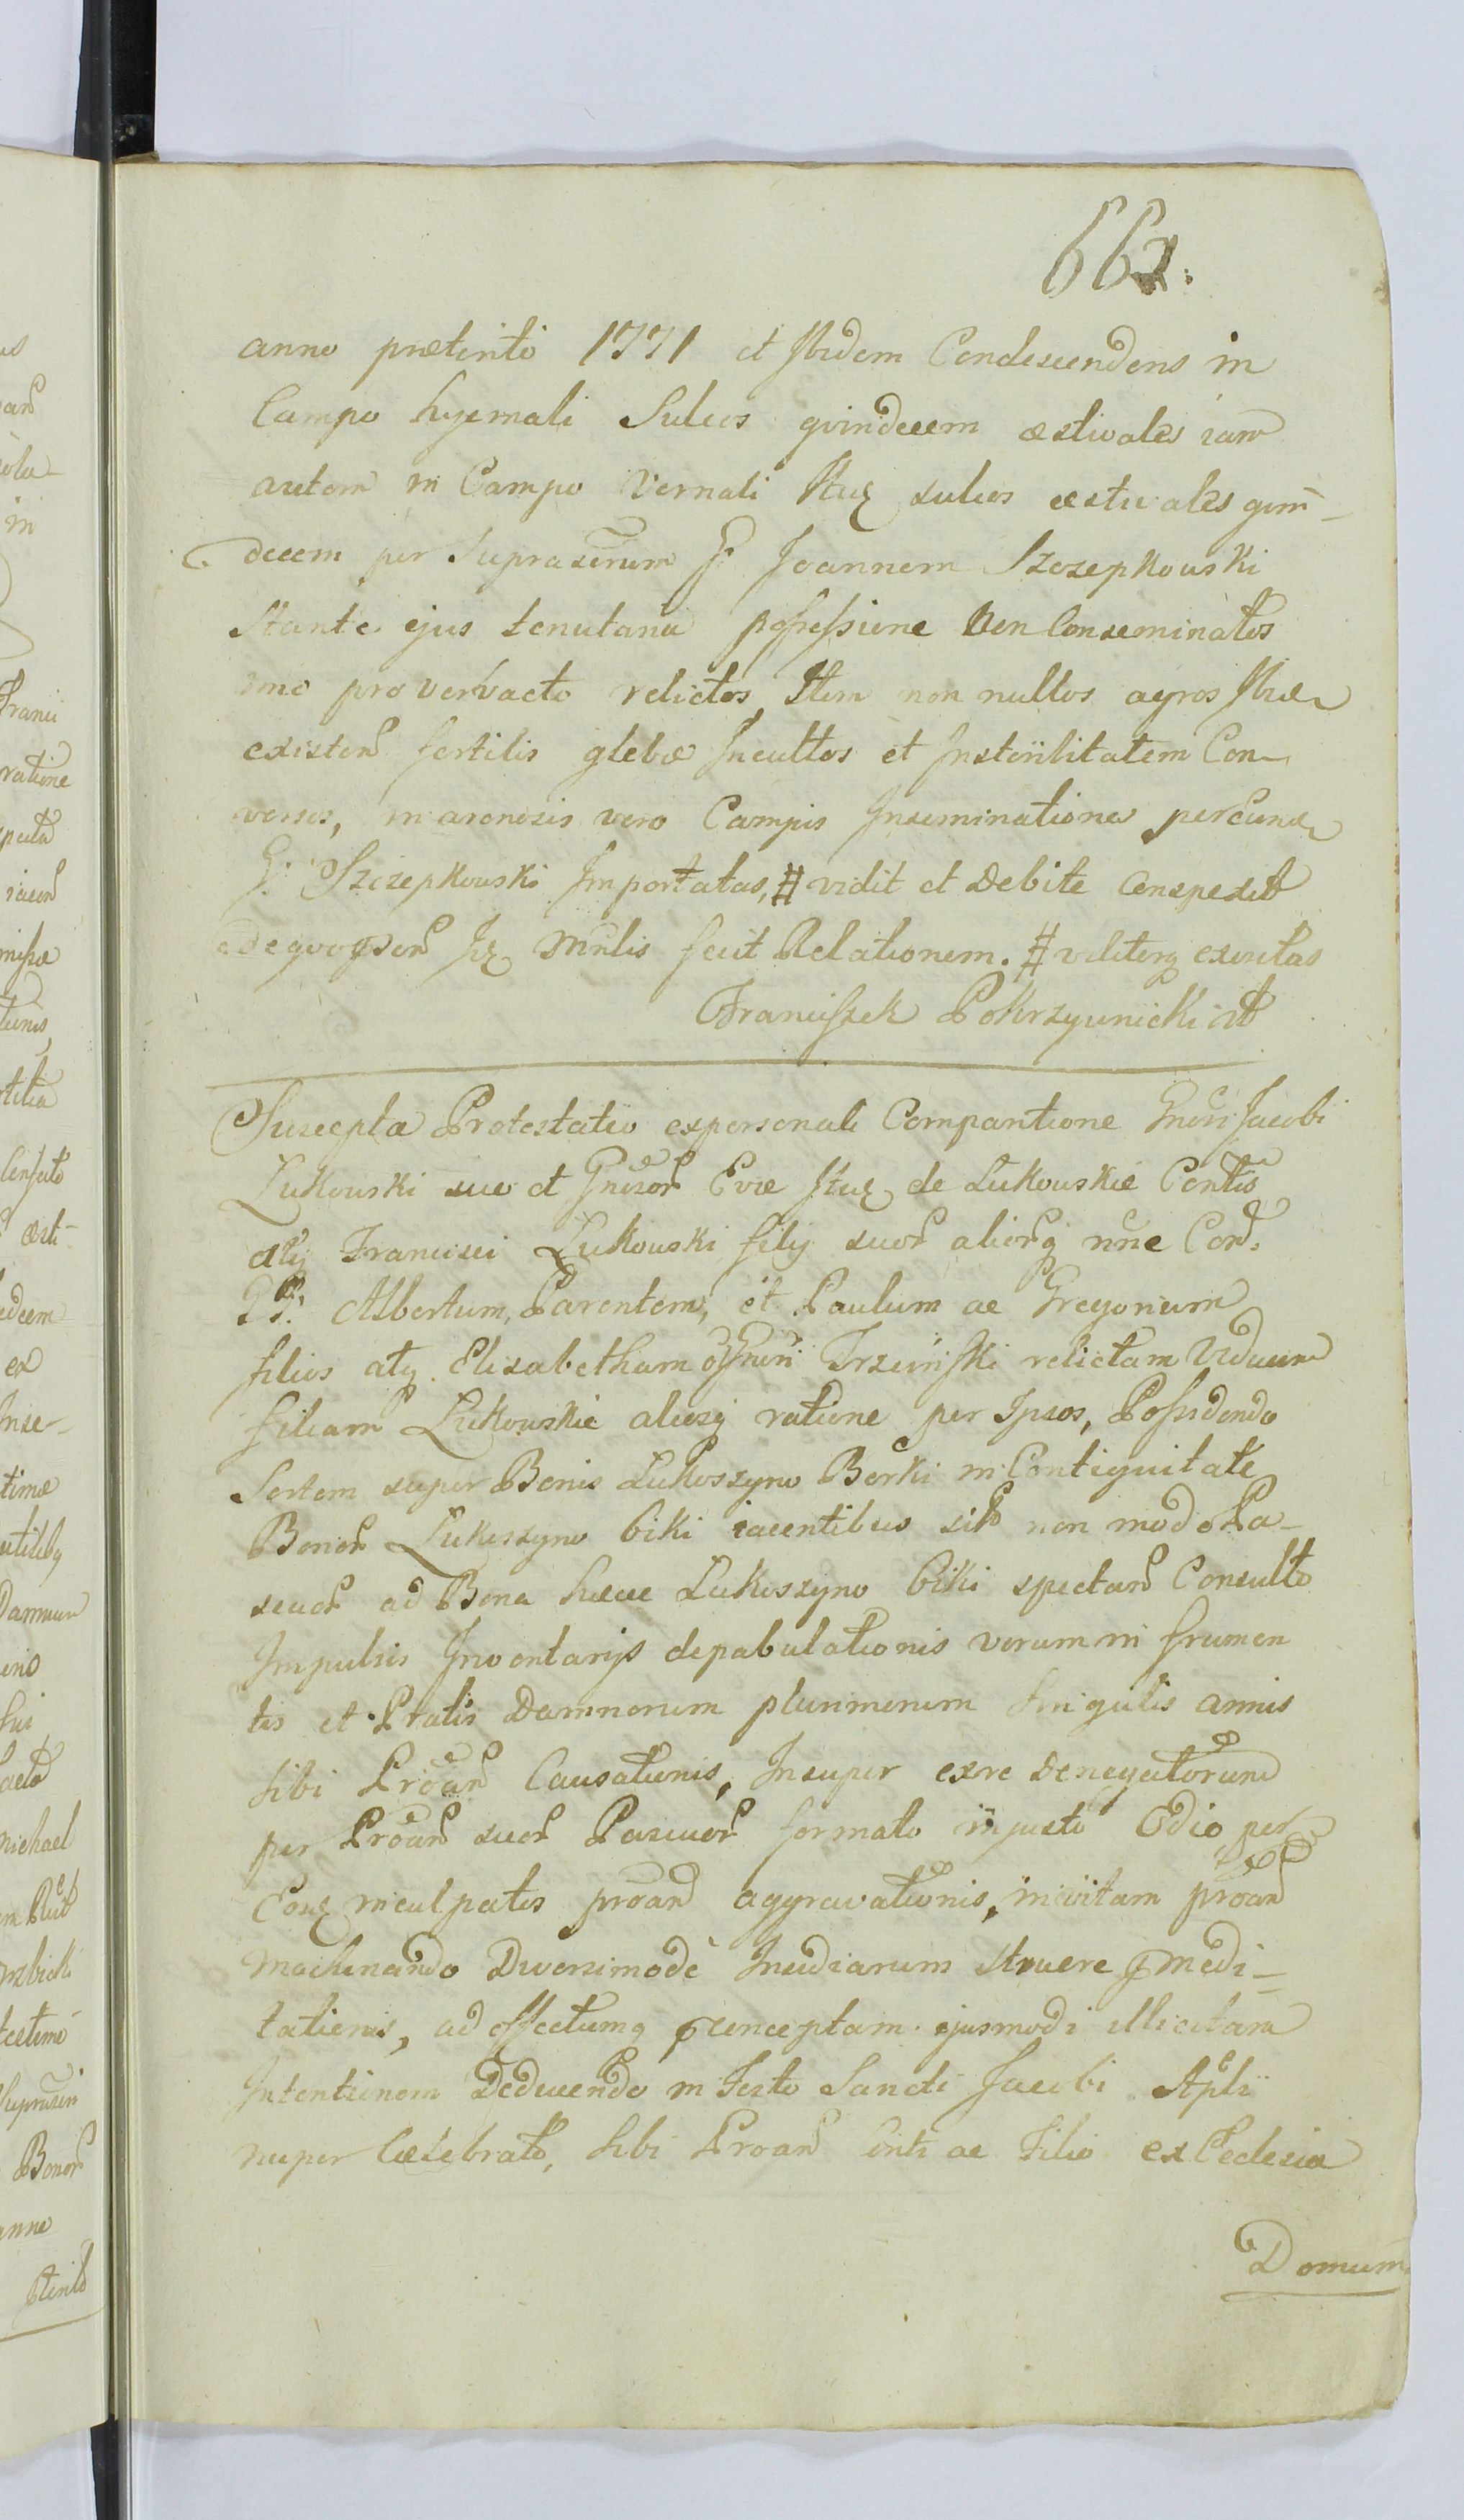 662.
anno præterito 1771 et Ibidem Condescendens in
Campo hyemali Sulcos quindecem æstivales iam
autem in Campo Vernali Itiq sulcos æstivales quin-
decem per Suprascrum G. Joannem Szczepkowski
Stante ejus tenutaria possessione Non Conseminatos
imo pro vervacto relictos, Item non nullos agros Ibid
existen fertilis glebæ Incultos et Insterilitatem Con-
versos, in arenosis vero Campis Inseminationes per Eund
G. Szczepkowski Importatas, # vidit et Debite Conspexit
Dequo Iq Mnlis fecit Relationem. # viliterq exeritas
Franciszek Pokrzywnicki
Suscepta Protestatio expersonali Comparitione Gnosi Jacobi
Lukowski suo et Gnosor Evæ Itiq de Lukowskie Contis
atq Francisci Lukowski filij suor aliorq nne Con.
GG. Albertum, Parentem, et Paulum ac Gregorium
filios atq Elisabetham Trzciński relictam Viduam
filiam Lukowskie aliosq ratione per Ipsos, Possidendo
Sortem super Bonis Lukoszyno Borki in Contiguitate
Bonor Lukoszyno biki iacentibus sitt non modo Pa-
scuor ad Bona hæcce Lukoszyno biki spectan Consulto
Impulsis Inventarijs depabulationis verum in frumen
tis et Pratis Damnorum plurimorum Singulis annis
sibi Proan Causationis, Insuper exre denegatorum
per Proan suor Pascuor formato injusto Odio per
Eosq inculpatos proan aggravationis, invitam proan
machinando Diversimode Insidiarum struere præmedi-
tationis, ad effectumq præconceptam ejusmodi illicitam
Intentionem Deducendo in Festo Sancti Jacobi Apli
nuper Cælebrato, sibi Proan Conti ac Filio ex Ecclesia
Domum